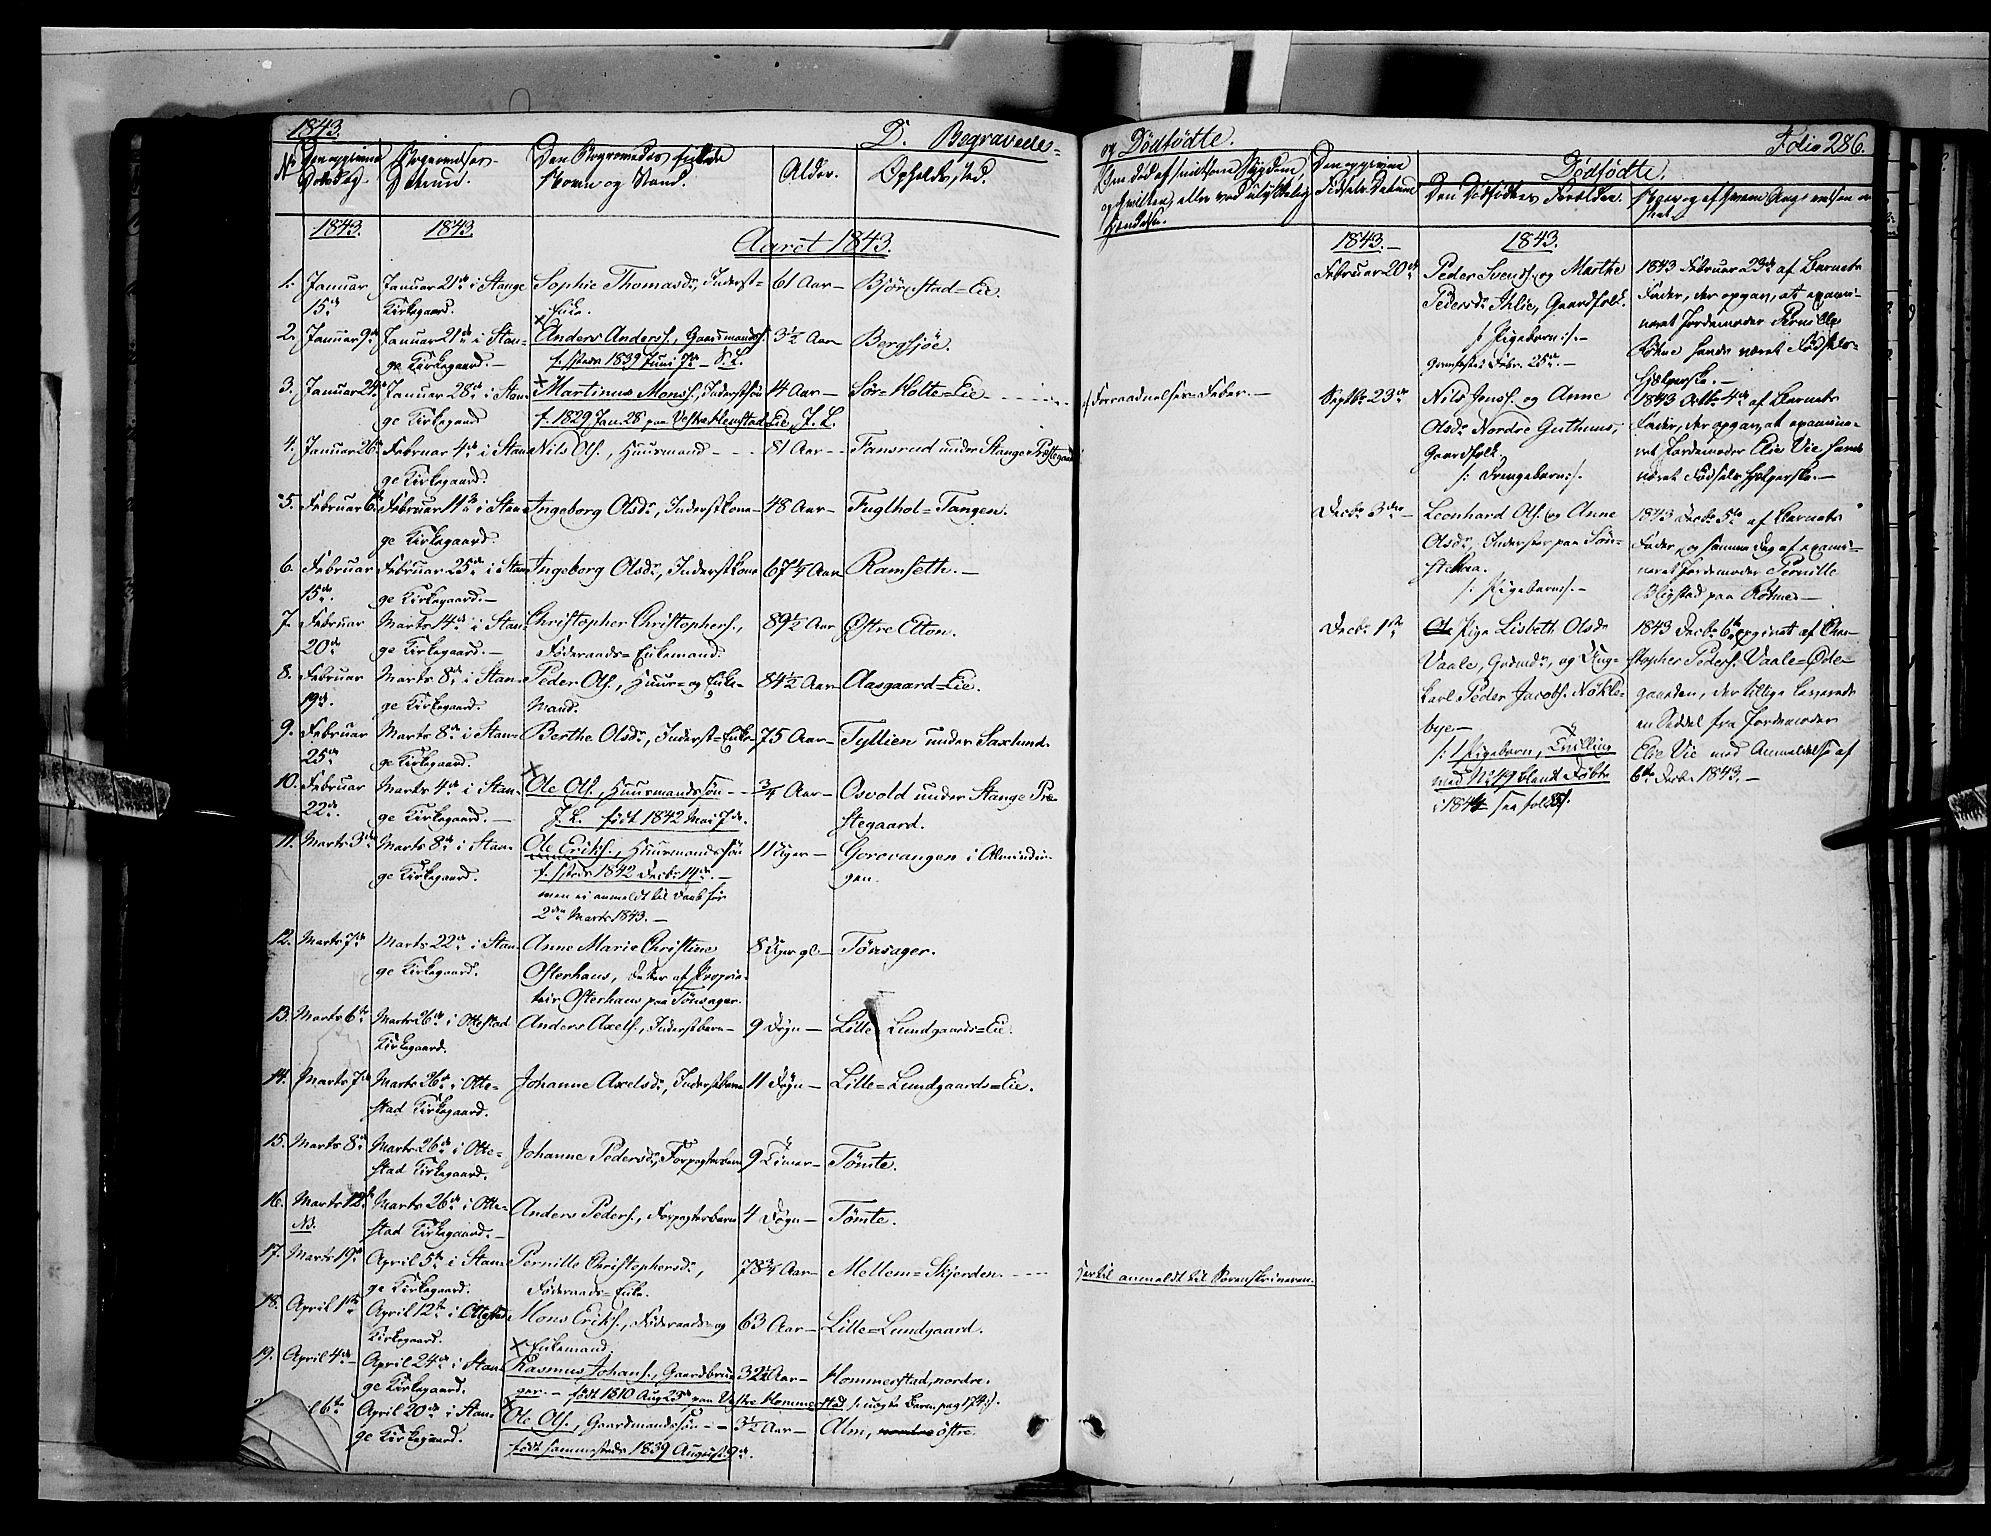 1843.
D. Begravede-
No Den opgivne Dødsdag.
Begravelses-Datum.
Den Begravedes fulde Navn og Stand.
Alder.
Opholdssted.
1843.
1843.
Aaret 1843.
1. Januar 15de
Januar 21de i Stange Kirkegaard.
Sophie Thomasdr, Inderst-Enke.
61 Aar
Bjørnstad-Eie.
2. Januar 9de
Januar 21de i Stange Kirkegaard.
Anders Anders., Gaardmandss.
f. steds 1839 Juni 7de
3½ Aar
Bergsjøe.
3. Januar 24de
Januar 28de i Stange Kirkegaard
Martinus Monss., Inderstsøn
f. 1829 Jan. 28 paa Vestre Lienstad Eie, J. L.
14 Aar
Sør-Holte-Eie
4. Januar 26de
Februar 4de i Stange Kirkegaard.
Nils Ols., Huusmand
81 Aar
Fansrud under Stange Præstegaard
5. Februar 6te
Februar 11te i Stange Kirkegaard.
Ingeborg Olsdr, Inderstkone
48 Aar
Fuglhol-Tangen.
6. Februar 15de.
Februar 25de i Stange Kirkegaard.
Ingeborg Olsdr, Inderstkone
67¼ Aar
Ramseth.
7. Februar 20de
Marts 14de i Stange Kirkegaard.
Christopher Christophers., Føderaads-Enkemand.
89½ Aar
Østre Etton.
8. Februar 19de.
Marts 8de i Stange Kirkegaard.
Peder Ols., Huus- og Enke-Mand.
84½ Aar
Aasgaard-Eie.
9. Februar 25de
Marts 8de i Stange Kirkegaard.
Berthe Olsdr, Inderst-Enke
75 Aar
Tyllien under Saxlund.
10. Februar 22de.
Marts 4de i Stange Kirkegaard.
Ole Ols., Huusmandssøn
J. L. født 1842 Mai 7de.
¾ Aar
Osvold under Stange Præstegaard.
11. Marts 3de
Marts 8de i Stange Kirkegaard.
Ole Eriks., Huusmandssøn
f. steds 1842 Decbr 14de.
men ei anmeldt til Daab før
2den Marts 1843.
11 Uger
Gorovangen i Almindingen.
12. Marts 7de
Marts 22de i Stange Kirkegaard.
Anne Marie Christine
Osterhaus, Datter af Proprietair Osterhaus paa Tønsager.
8 Uger gl.
Tønsager.
13. Marts 6te
Marts 26de i Ottestad Kirkegaard.
Anders Axels., Inderstbarn
9 Døgn
Lille-Lundgaards-Eie.
14. Marts 7de
Marts 26de i Ottestad Kirkegaard.
Johanne Axelsdr, Inderstbarn
11 Døgn
Lille-Lundgaards-Eie.
15. Marts 8de
Marts 26de i Ottestad Kirkegaard.
Johanne Pedersdr, Forpagterbarn
9 Timer
Tømte.
16. Marts 12te
NB.
Marts 26de i Ottestad Kirkegaard.
Anders Peders., Forpagterbarn
4 Døgn
Tømte.
17. Marts 19de
April 5te i Stange Kirkegaard.
Pernille Christophersdr, Føderaads-Enke.
78¾ Aar
Mellem-Skjerden
18. April 1ste
April 12te i Ottestad Kirkegaard.
Mons Eriks., Føderaads- og Enkemand.
63 Aar
Lille-Lundgaard.
19. April 4de
April 24de i Stange Kirkegaard.
Rasmus Johans., Gaardbruger.
født 1810 Aug 25de paa Vestre Hommerstad /: uægte Barn, pag 174:/.
32½ Aar
Hommerstad, nordre.
6te
April 20de i Stange Kirkegaard.
Ole Ols., Gaardmandssøn
født sammesteds 1839 August 9de.
3½ Aar
Alm, nordre østre.
og Dødfødte.
Folio 286.
Om død af smitsom Sygdom, og hvilken, eller ved ulykkelig Hændelse.
Den opgivne Fødsels-Datum
Dødfødte.
Den Dødfødtes Forældre.
Naar og af hvem Angivelsen er skeet.
1843.
1843.
Februar 20de
Peder Svends. og Marthe
Pedersdr Ihlie, Gaardfolk.
/: Pigebarn:/.
Begravet Febr. 25de.
1843 Februar 23de af Barnets
Fader, der opgav, at examineret Jordemoder Pernille
Røhne havde været Fødselshjelperske.
af Forraadnelses-Feber.
Septbr 23de
Nils Jens. og Anne
Olsdr Nordre Guthuus,
Gaardfolk.
/: Drengebarn:/.
1843 Octbr 4de af Barnets
Fader, der opgav, at examineret Jordemoder Elie Vie havde
været Fødselshjelperske.
Decbr 3die
Leonhard Ols. og Anne
Olsdr, Inderster paa Sønstebraa.
/: Pigebarn:/.
1843 Decbr 5te af Barnets
Fader, og samme Dag af examineret Jordemoder Pernille
Bligstad paa Røhne
Decbr 1ste
Pige Lisbeth Olsdr
Vaale, Grdmdr, og Ungkarl Peder Jacobs. Nøklebye
/: Pigebarn, Tvilling
med No 49 blandt Døbte
i 1844 see fol :/.
1843 Decbr 6te opgivet af Christopher Peders. Vaale-Ødegaarden, der tillige leverede
en Seddel fra Jordemoder
Elie Vie med Anmeldelse af
6te Decbr 1843.
Hertil anmeldt til Sorenskriveren.